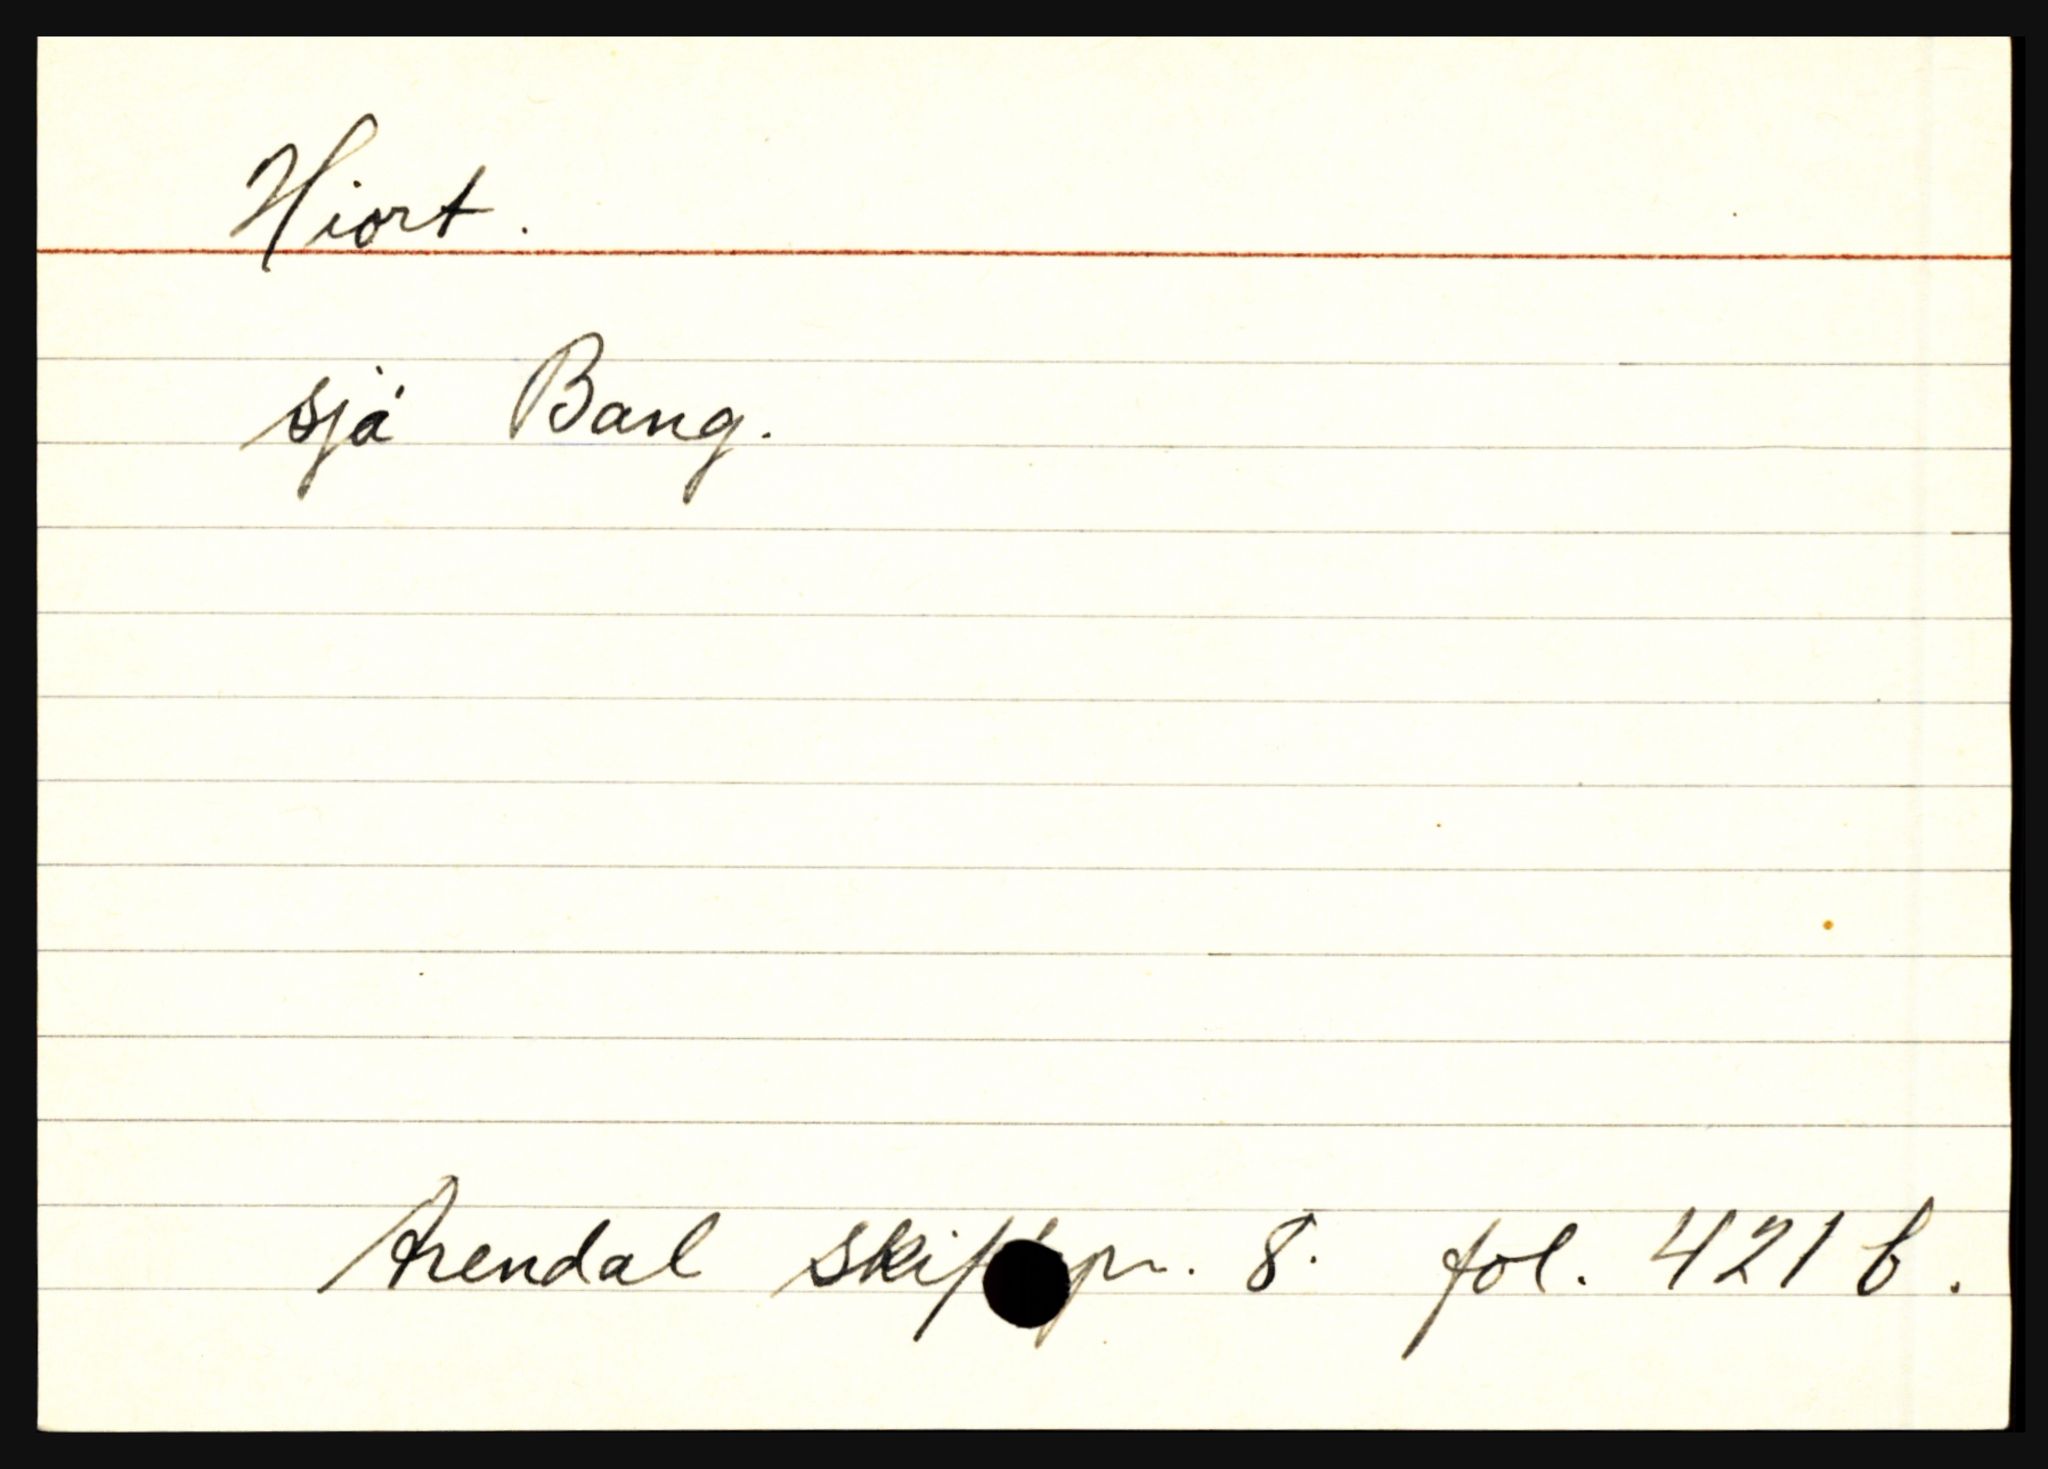 Hiort.
sjå Bang.
Arendal skiftpr. 8. fol. 421 b.